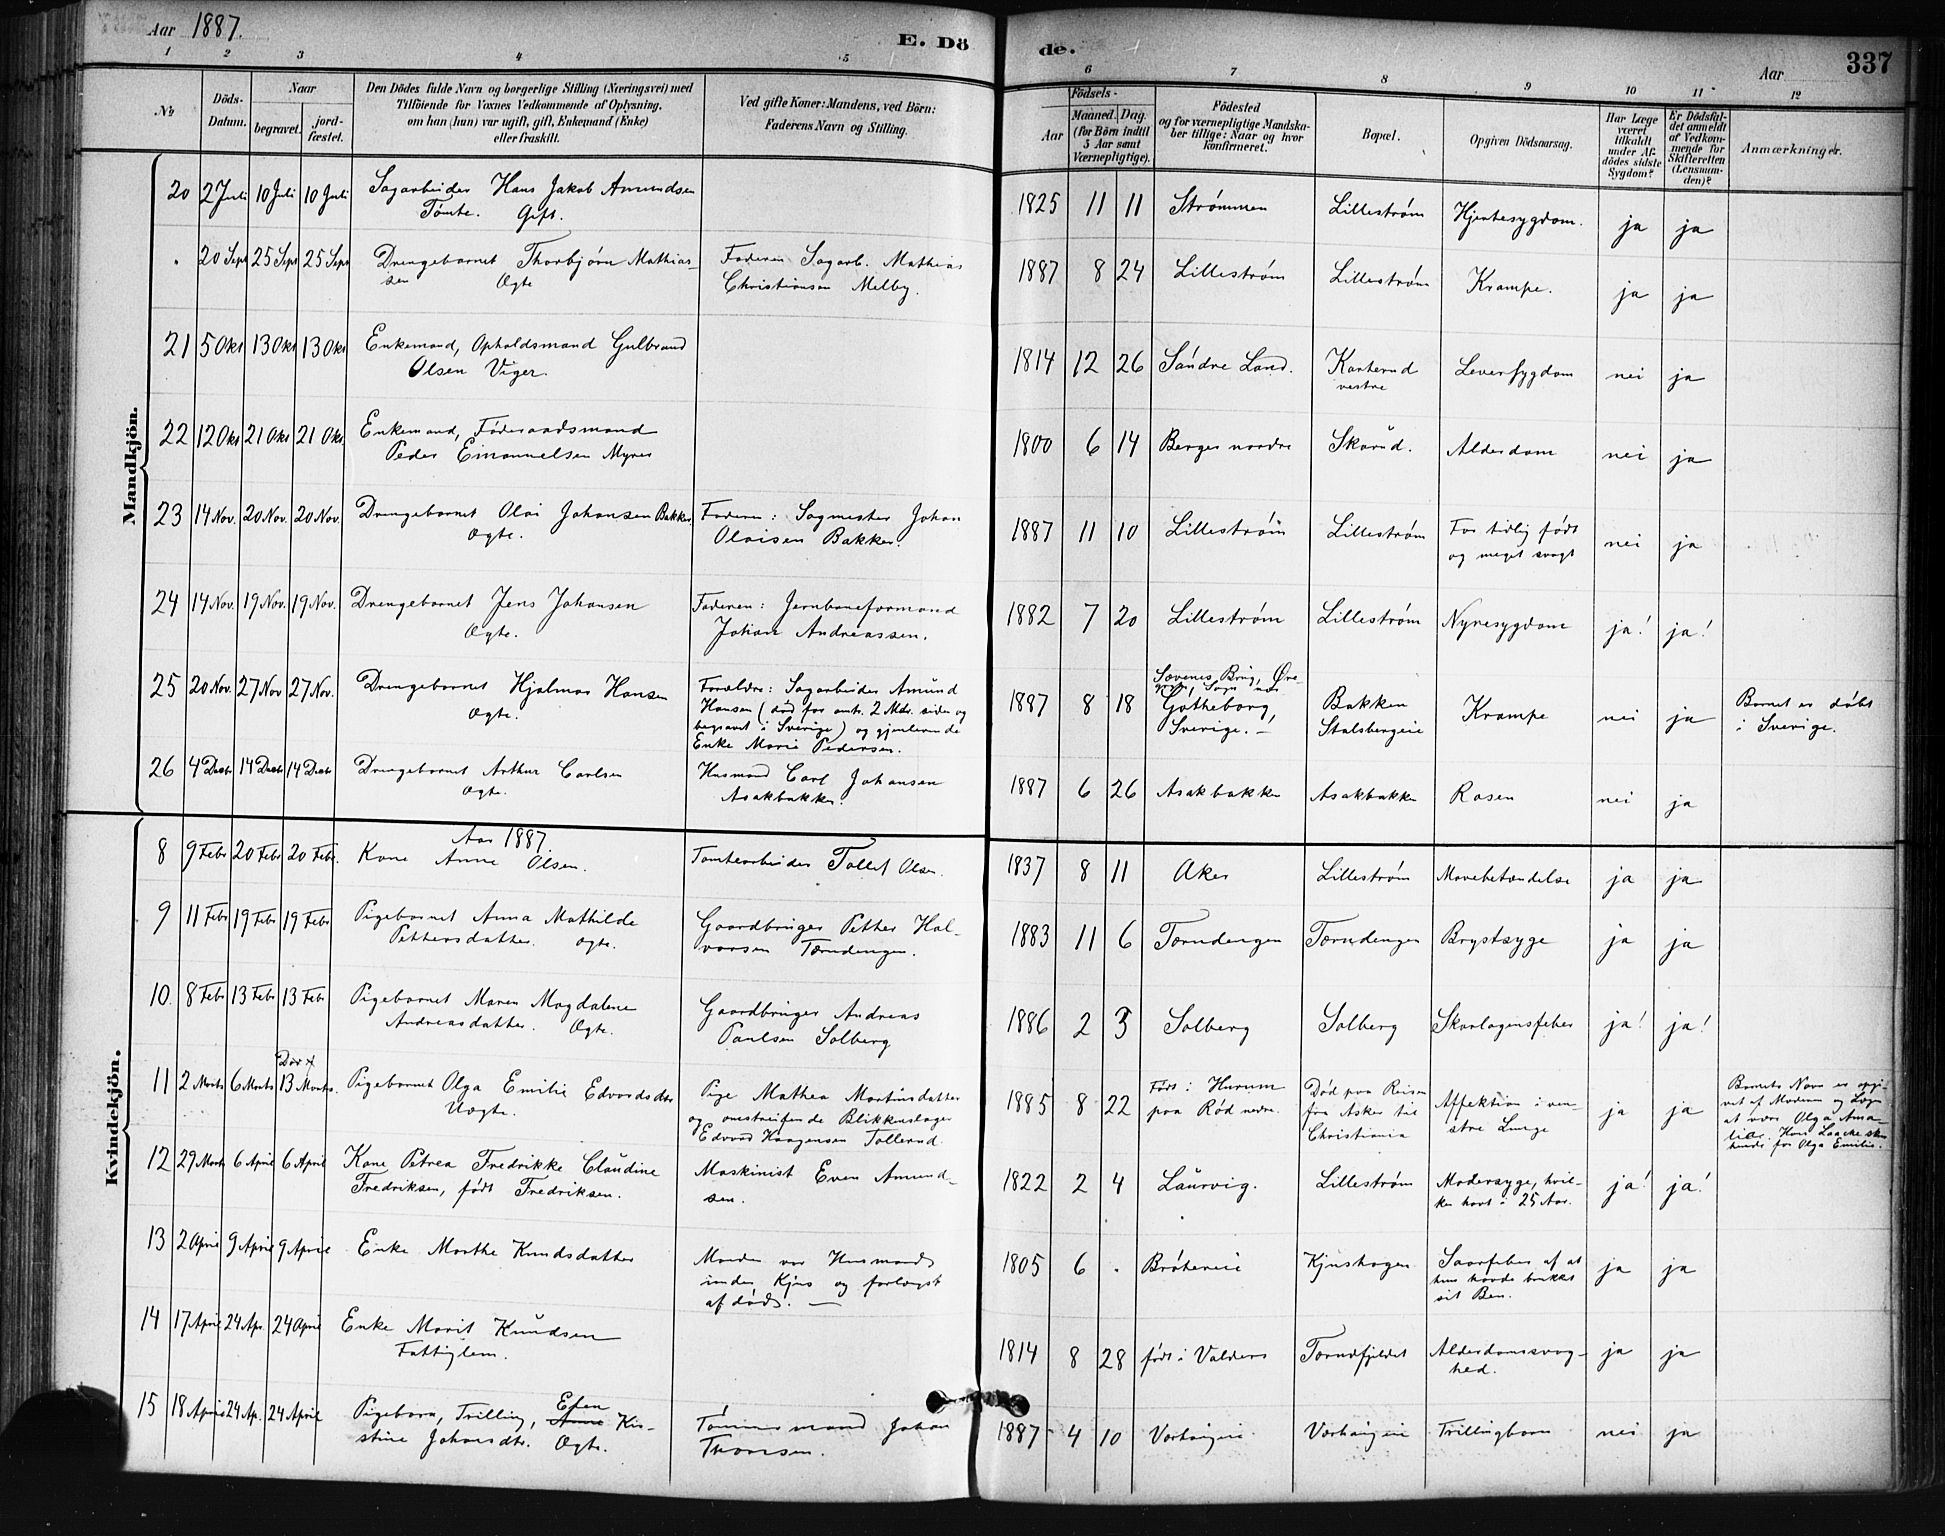 Aar 1887.
E. Dö de.
Aar
337
1 2 3 4 5 6 7 8 9 10 11 12
No
Döds-Datum.
Naar
begravet.
jordfæstet.
Den Dödes fulde Navn og borgerlige Stilling (Næringsvei) med
Tilföiende for Voxnes Vedkommende af Oplysning,
om han (hun) var ugift, gift, Enkemand (Enke)
eller fraskilt.
Ved gifte Koner: Mandens, ved Börn:
Faderens Navn og Stilling.
Födsels-
Aar
Maaned. Dag.
(for Börn indtil
5 Aar samt
Værnepligtige).
Födested
og for værnepligtige Mandskaber tillige: Naar og hvor
konfirmeret.
Bopæl.
Opgiven Dödsaarsag.
Har Læge
været
tilkaldt
under Afdödes sidste
Sygdom?
Er Dödsfaldet anmeldt
af Vedkommende for
Skifteretten
(Lensmanden)?
Anmærkninger.
Mandkjön.
20 2 Juli 10 Juli 10 Juli Sagarbeider Hans Jakob Amundsen
Tomte. Gift.
1825 11 11 Strømmen Lillestrøm Hjertesygdom. ja ja
. 20 Sept 25 Sept 25 Sept Drengebarnet Thorbjørn Mathiassen Ægte
Faderen Sagarb. Mathias
Christiansen Melby.
1887 8 24 Lillestrøm Lillestrøm Krampe. ja ja
21 5 Okt 13 Okt 13 Okt Enkemand, Opholdsmand Gulbrand
Olsen Viger.
1814 12 26 Søndre Land. Karterud
vestre
Leversygdom nei ja
22 12 Okt 21 Okt 21 Okt Enkemand, Føderaadsmand
Peder Emanuelsen Myrer
1800 6 14 Berger nordre Skarud. Alderdom nei ja
23 14 Nov. 20 Nov. 20 Nov. Drengebarnet Olai Johansen Bakker
Ægte.
Faderen: Sagmester Johan
Olaisen Bakker.
1887 11 10 Lillestrøm Lillestrøm For tidlig født
og meget svagt
nei ja
24 14 Nov. 19 Nov. 19 Nov. Drengebarnet Jens Johansen
Ægte.
Faderen: Jernbaneformand
Johan Andreassen.
1882 7 20 Lillestrøm Lillestrøm Nyresygdom ja! ja!
25 20 Nov. 27 Nov 27 Nov. Drengebarnet Hjalmar Hansen
Ægte.
Forældre: Sagarbeider Amund
Hansen (død for omtr. 2 Mdr. siden og
begravet i Sverige) og gjenlevende
Enke Marie Pedersen.
1887 8 18
Gøtheborg,
Sverige. –
Bakken
Stalsbergeie
Krampe nei ja
Barnet er døbt
i Sverige.
26 4 Decbr 14 Decbr 14 Decbr Drengebarnet Arthur Carlsen
Ægte.
Husmand Carl Johansen
Asakbakken.
1887 6 26 Asakbakken Asakbakken Rosen nei ja
Kvindekjön.
Aar 1887.
8 9 Febr 20 Febr 20 Febr. Kone Anne Olsen.
Tomtearbeider Tollef Olsen.
1837 8 11 Aker Lillestrøm Mavebetændelse ja ja
9 11 Febr 19 Febr 19 Febr Pigebarnet Anna Mathilde
Pettersdatter. Ægte.
Gaardbruger Petter Halvorsen Tærudengen.
1883 11 6 Tærudengen Tærudengen Brystsyge ja ja
10. 8 Febr 13 Febr 13 Febr Pigebarnet Maren Magdalene
Andreasdatter. Ægte.
Gaardbruger Andreas
Paulsen Solberg
1886 2 3 Solberg Solberg Skarlagensfeber ja! ja!
11 2 Marts 6 Marts 13 Marts. Pigebarnet Olga Emilie Edvardsdtr
Uægte.
Pige Mathea Martinsdatter
og omstreifende Blikkenslager
Edvard Haagensen Tollerud.
1885 8 22 Født i Hurum
paa Rød nedre.
Død paa Reisen
fra Asker til
Christiania
Affektion i venstre Lunge
ja ja
Barnets Navn er opgivet af Moderen og Lægen
at være Olga Amalie.
12 29 Marts 6 April 6 April Kone Petrea Fredrikke Claudine
Fredriksen, født Fredriksen.
Maskinist Even Amundsen.
1822 2 4 Laurvig. Lillestrøm Modersyge, hvilken havt i 25 Aar. ja! ja!
13 2 April 9 April 9 April Enke Marthe Knudsdatter
Manden var Husmand
under Kjus og forlængst
afdød. –
1805 6 . Bråtereie Kjushagen Saarfeber af at
hun havde brækket
sit Ben.
ja ja
14 17 April 24 Ap. 24 April Enke Marit Knudsen
Fattiglem.
1814 8 28 født i Valders Tærudfjeldet Alderdomssvaghed. ja ja
15 18 April 24 Ap. 24 April Pigebarn, Trilling, Anne Kristine Johansdtr. Ægte.
Tømmermand Johan
Thoresen.
1887 4 10 Vorhaugeie Vorhaugeie Trillingbarn nei ja